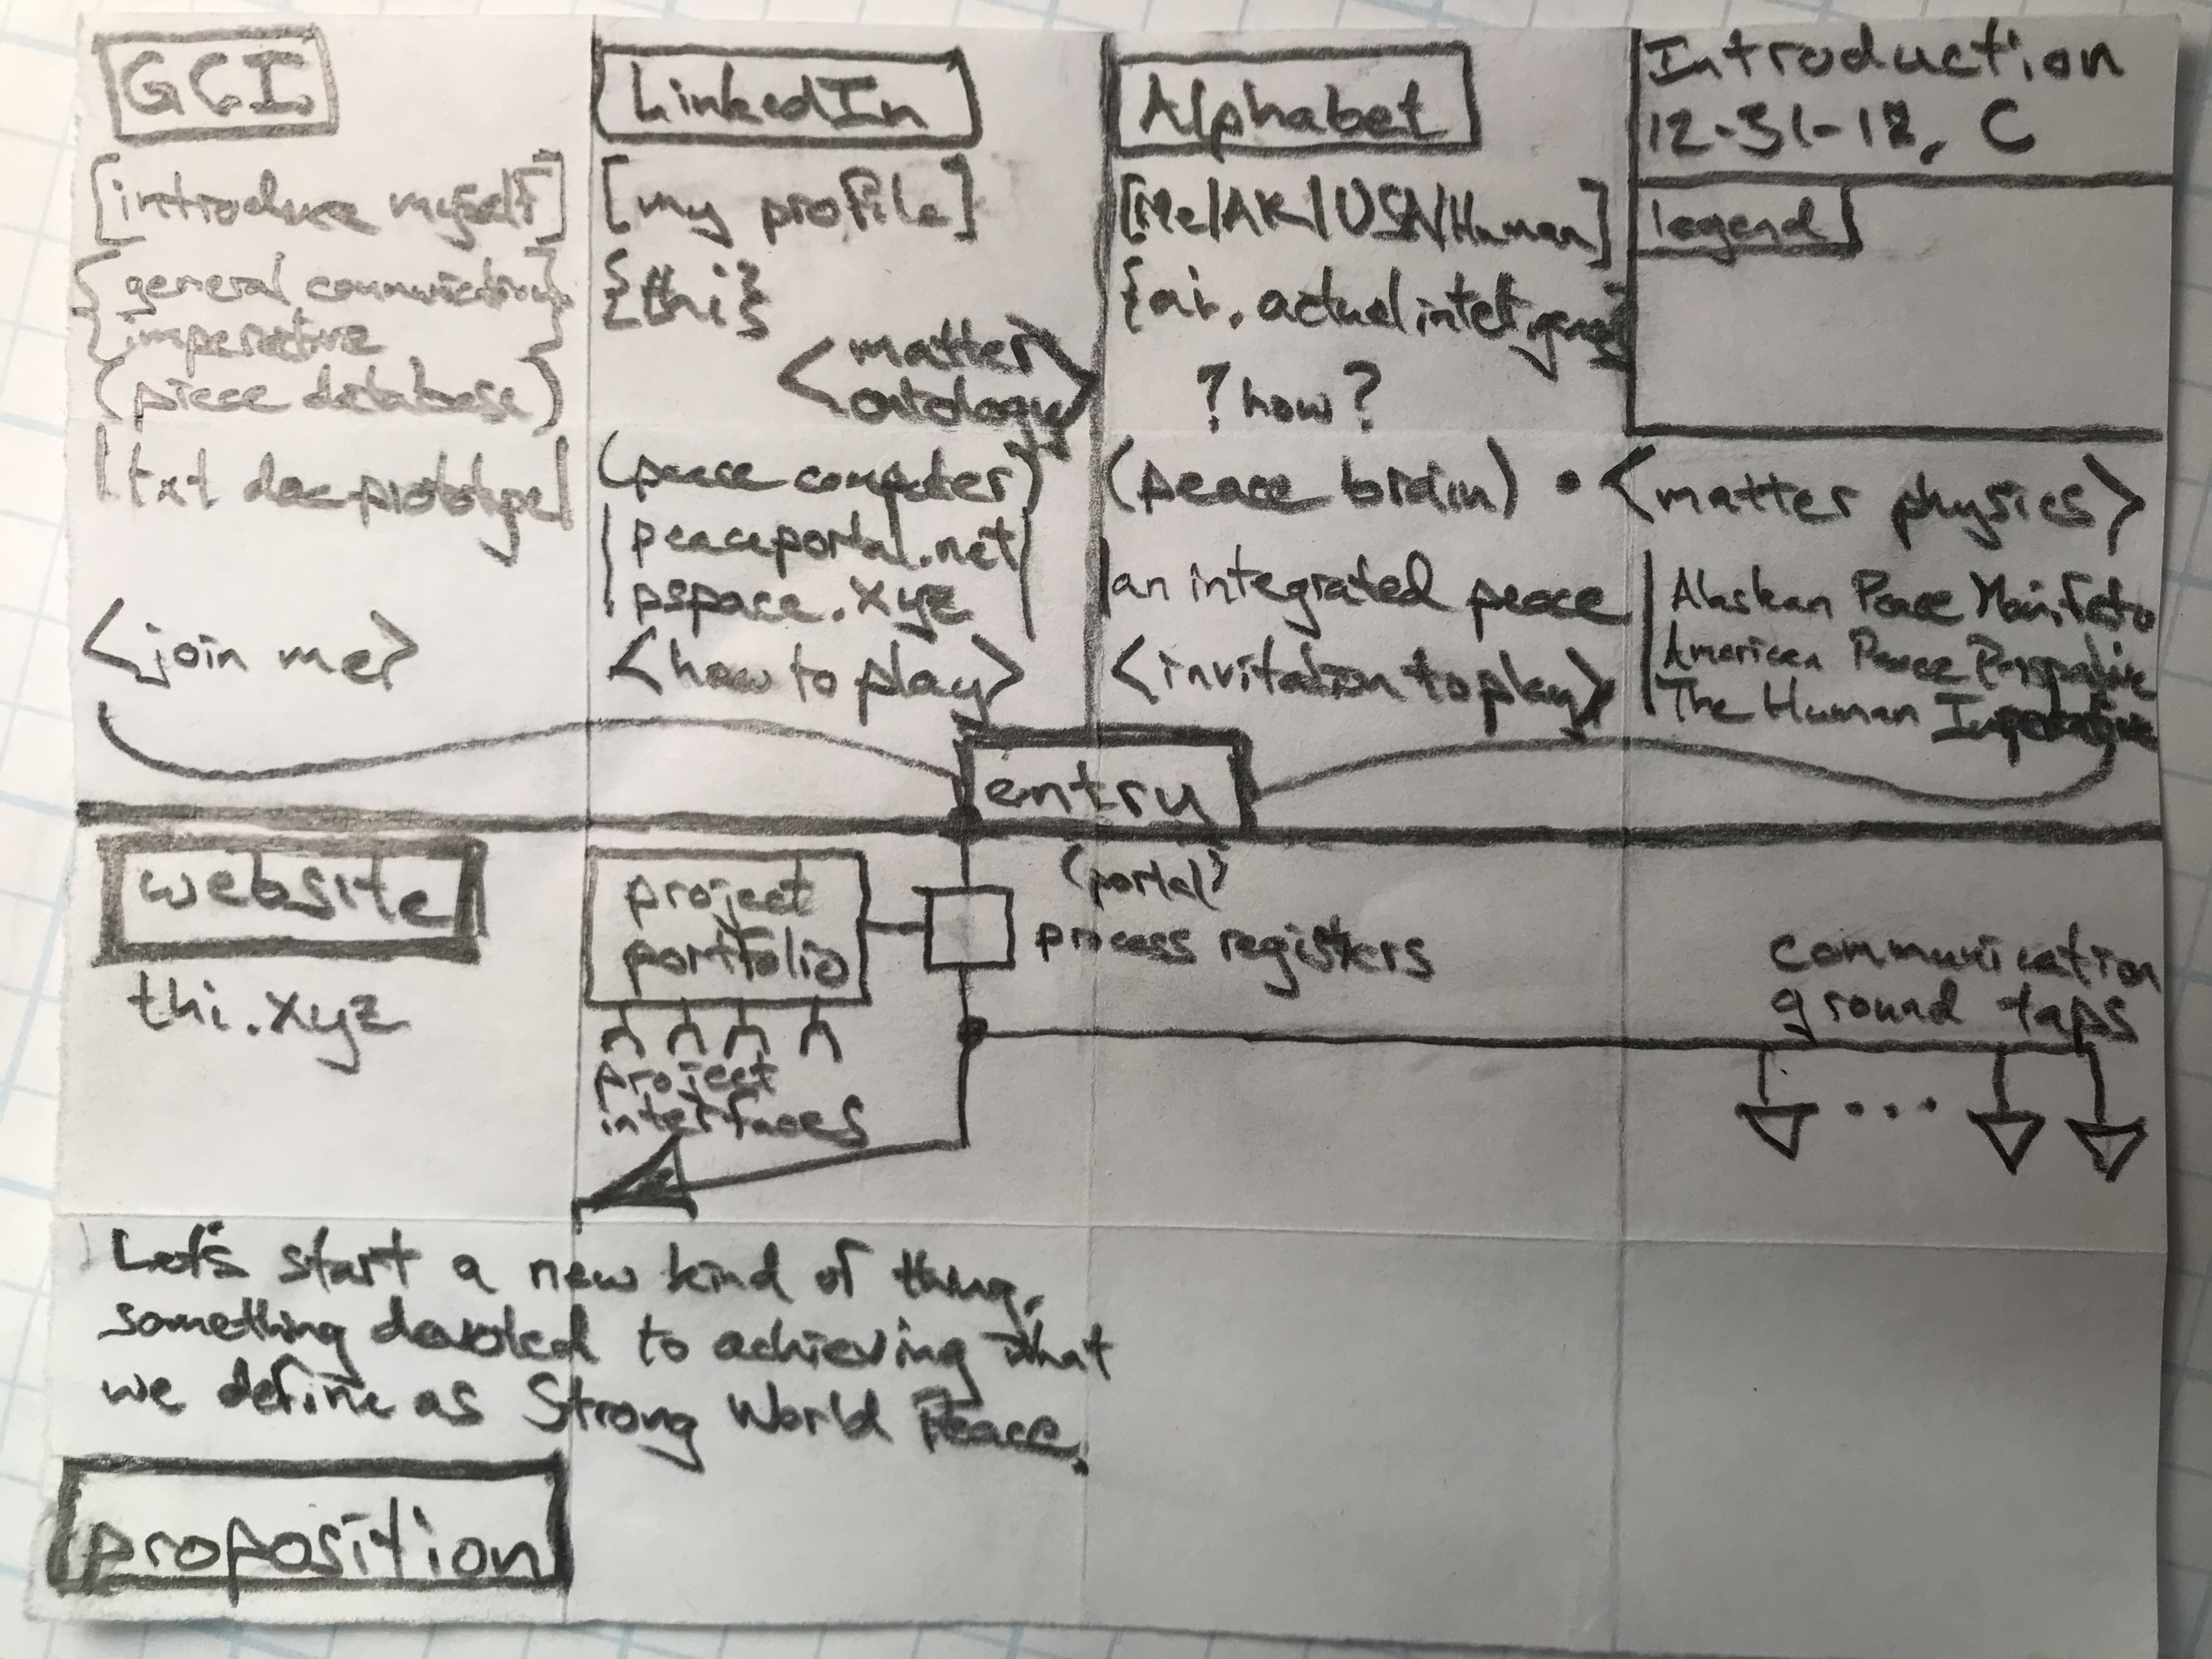 GCI
[introduce myself]
{general communication
imperative}
(piece database)
|txt doc prototype|
<join me>
LinkedIn
[my profile]
{thi}
<matter
ontology>
(peace computer)
|peaceportal.net
pspace.xyz|
<how to play>
Alphabet
[Me/AK/USA/Human]
{ai. actual intelligence}
?how?
(peace brain) • <matter physics>
|an integrated peace
<invitation to play>
Introduction
12-31-18, C
legend
|Alaskan Peace Manifesto
American Peace Perspective
The Human Imperative
entry
website
thi.xyz
project
portfolio
project
interfaces
(portal)
process registers
communication
ground taps
...
Let's start a new kind of thing,
something devoted to achieving what
we define as Strong World Peace.
proposition